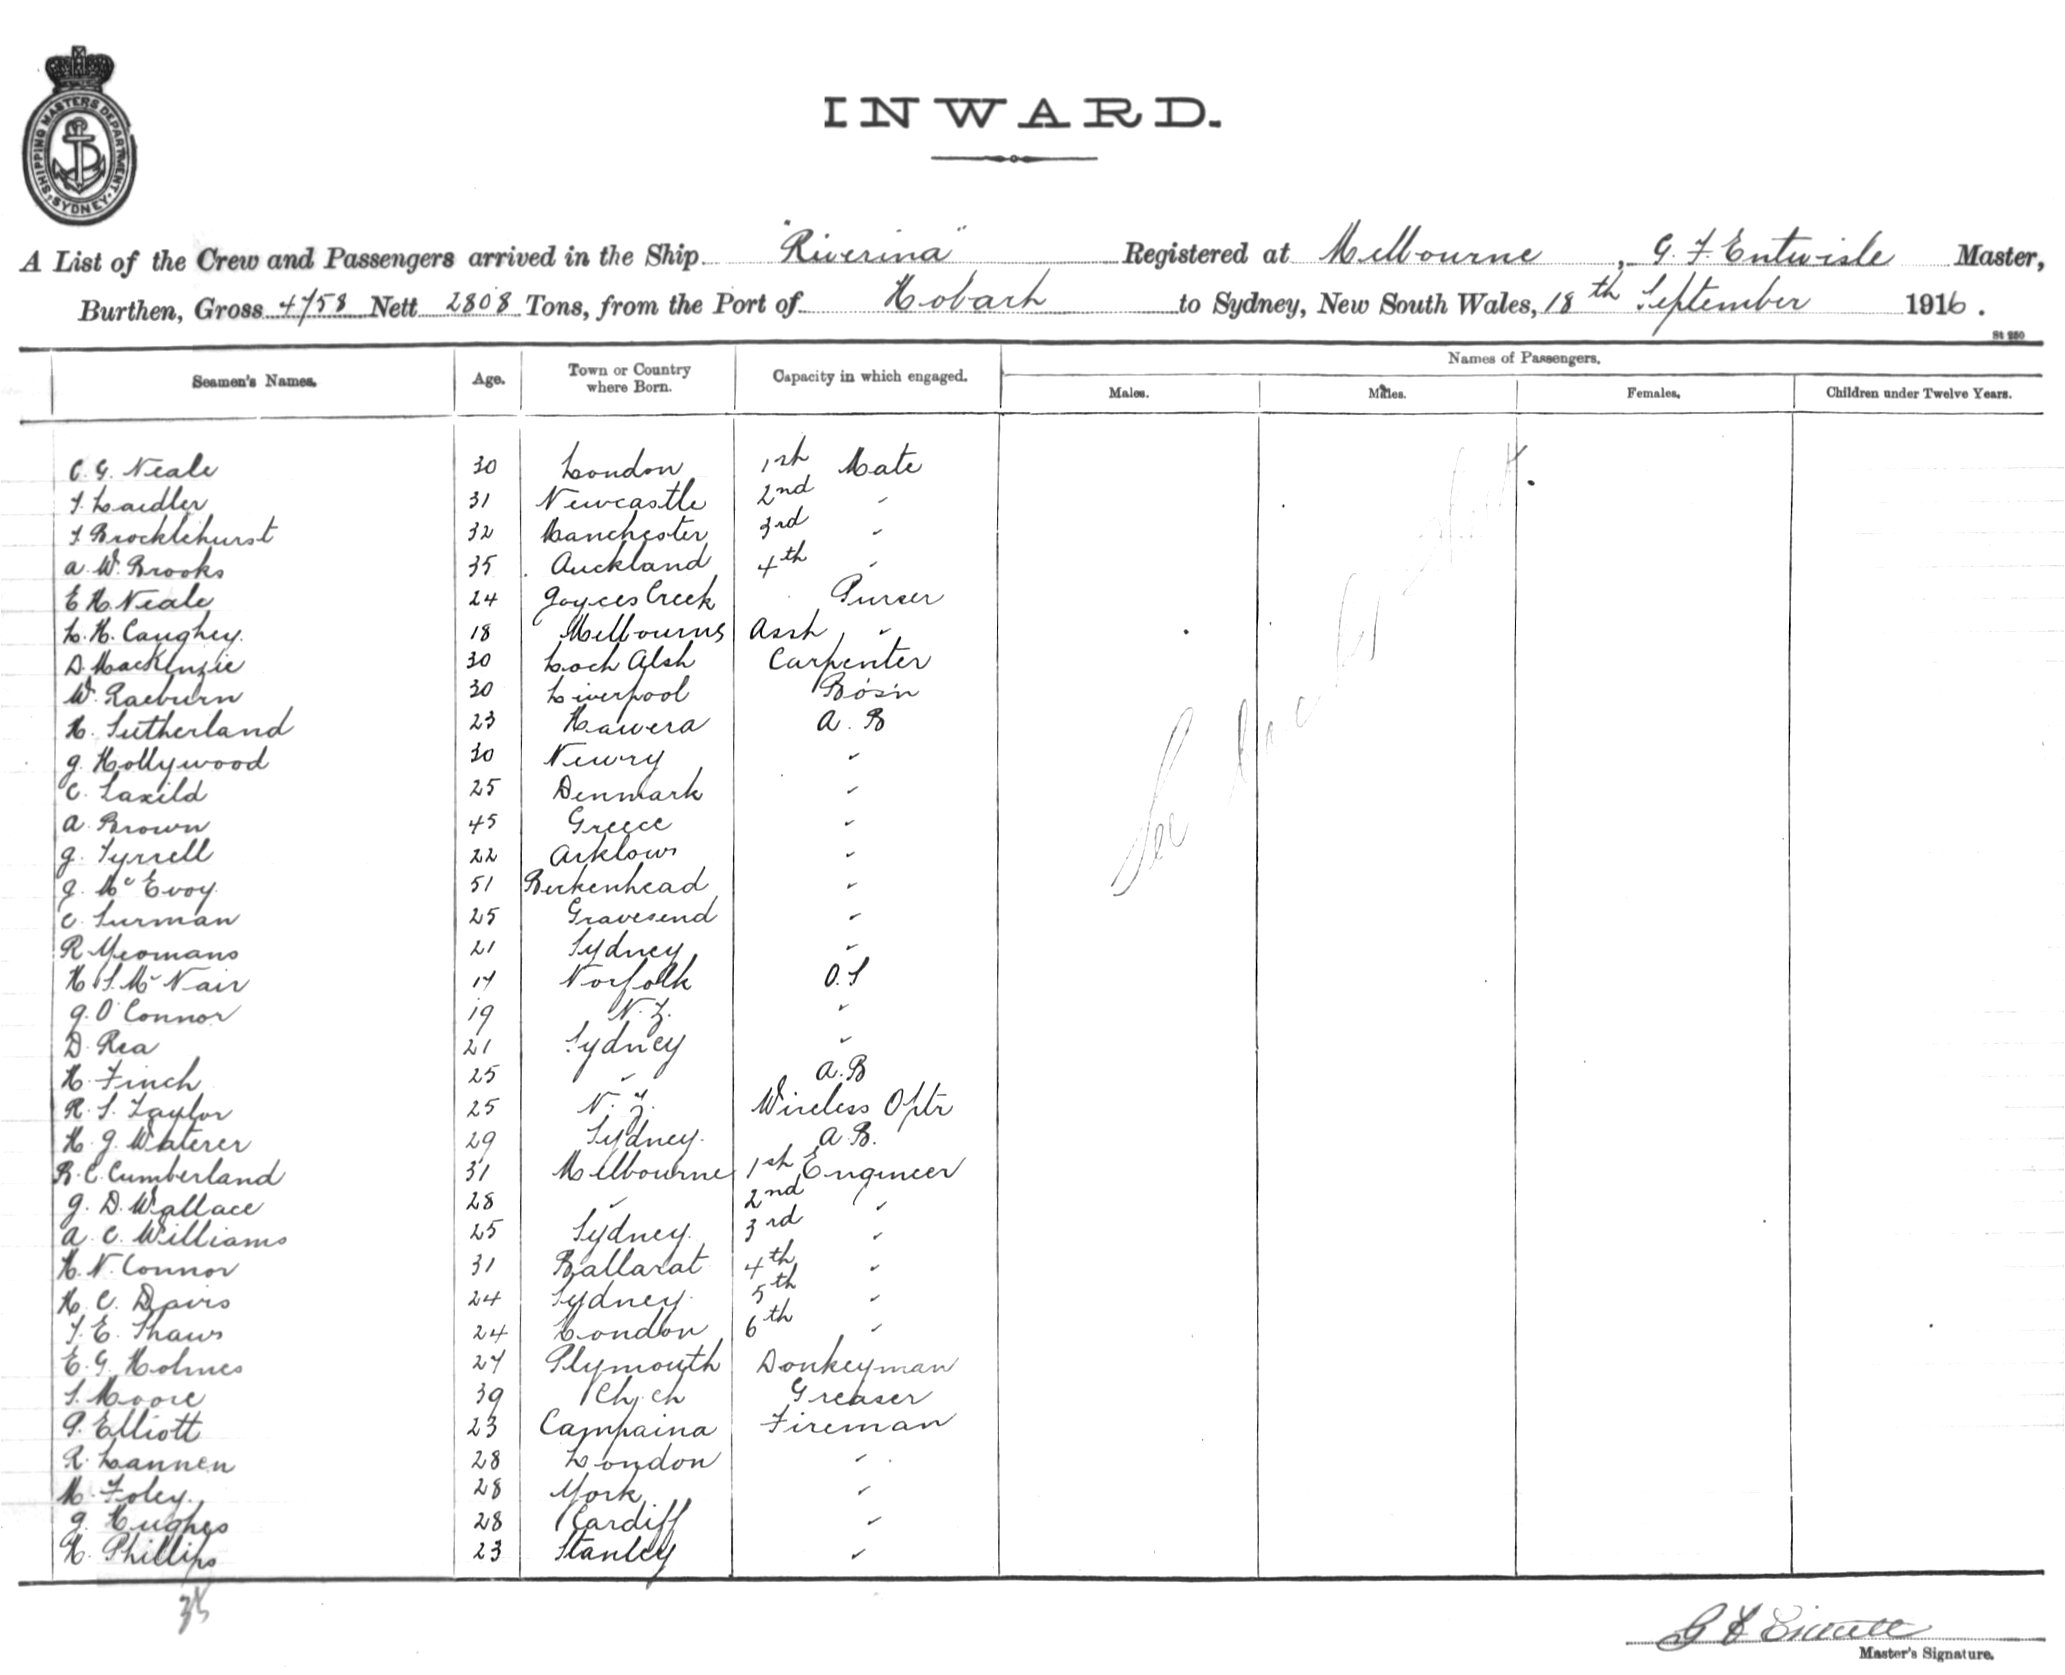 SHIPPING MASTERS DEPARTMENT. SYDNEY.
INWARD.
A List of the Crew and Passengers arrived in the Ship "Riverina" Registered at Melbourne, G. F. Entwisle Master,
Burthen, Gross 4758 Nett 2808 Tons, from the Port of Hobart to Sydney, New South Wales, 18th September 1916.
St 250
Names of Passengers.
Seamen's Names. Age. Town or Country where Born. Capacity in which engaged. Males. Males. Females. Children under Twelve Years.
C. G. Neale 30 London 1st Mate
F. Laidler 31 Newcastle 2nd "
F. Brocklehurst 32 Manchester 3rd "
A. W. Brooks 35 Auckland 4th "
E H. Neale 24 Joyces Creek Purser
L. H. Caughey 18 Melbourne Asst "
D. MacKenzie 30 Loch Alsh Carpenter
W. Raeburn 30 Liverpool Bos'n
H. Sutherland 23 Hawera A. B
J. Hollywood 30 Newry "
C. Saxild 25 Denmark "
A. Brown 45 Greece "
J. Tyrrell 22 Arklow "
J. McEvoy 51 Birkenhead "
C. Surman 25 Gravesend "
R Yeomans 21 Sydney "
H. S. McNair 17 Norfolk O. S
J. O'Connor 19 N. Z. "
D. Rea 21 Sydney "
H. Finch 25 " A. B
R. S. Taylor 25 N. Z. Wireless Optr
H. J. Waterer 29 Sydney A. B.
B. C. Cumberland 31 Melbourne 1st Engineer
J. D. Wallace 28 " 2nd "
A. C. Williams 25 Sydney 3rd "
H. N. Connor 31 Ballarat 4th "
H. C. Davis 24 Sydney 5th "
T. E. Thaws 24 London 6th "
E. G. Holmes 27 Plymouth Donkeyman
S. Moore 39 Ch. Ch Greaser
P. Elliott 23 Campaina Fireman
R. Lannen 28 London "
M. Foley 28 York "
J. Hughes 28 Cardiff "
H. Phillips 23 Stanley "
See
35
Master's Signature.